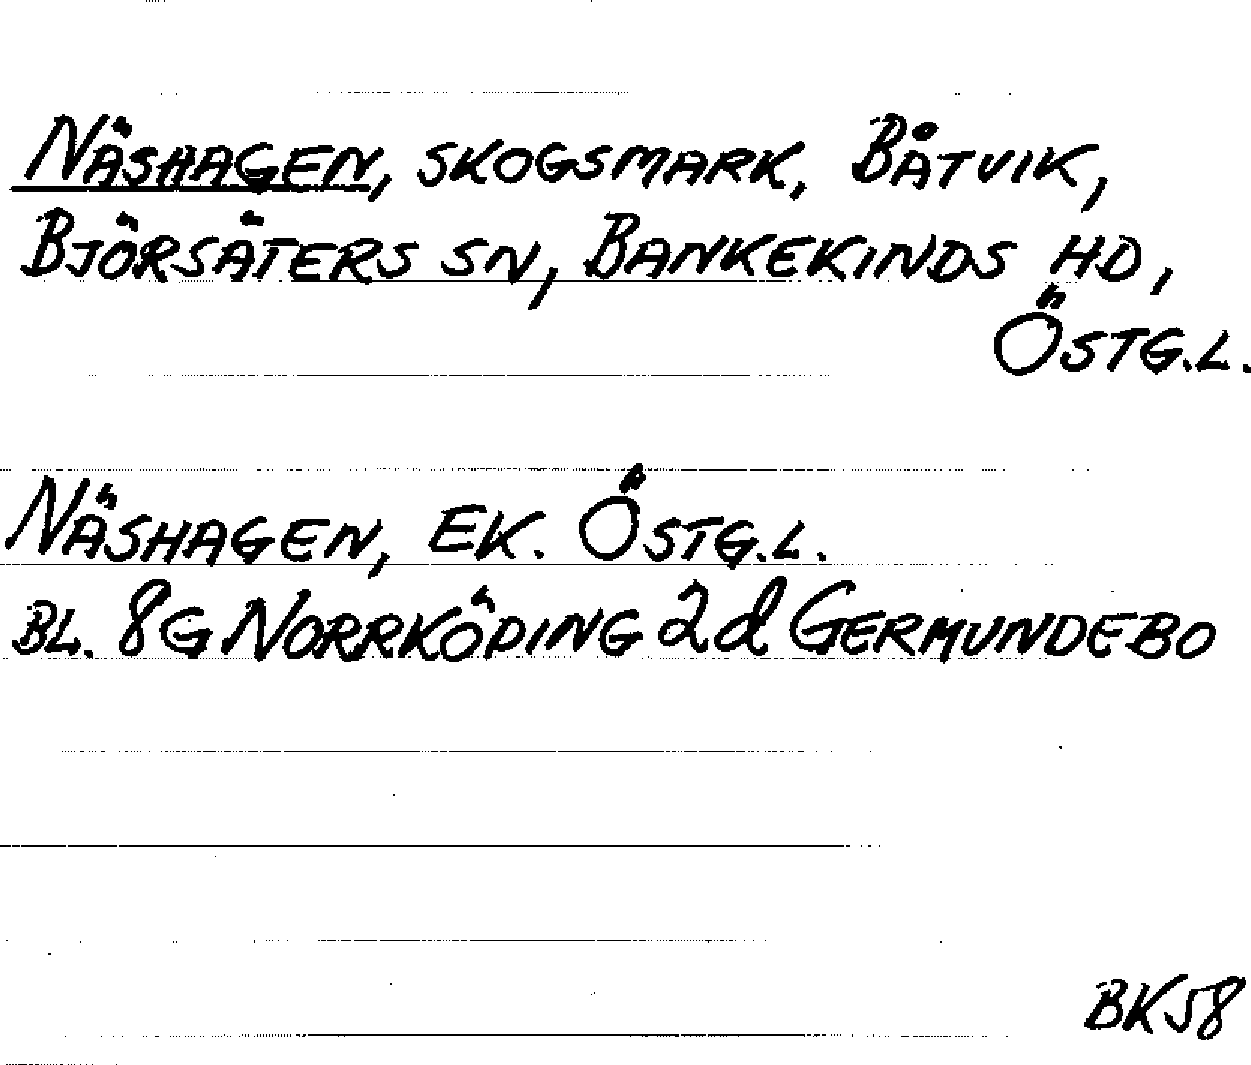 NÄSHAGEN, SKOGSMARK, BÅTVIK,
BJÖRSÄTERS SN, BANKEKINDS HD,
ÖSTG.L.
NÄSHAGEN, EK. ÖSTG.L.
BL. 8G NORRKÖPING 2d GERMUNDEBO
BK58